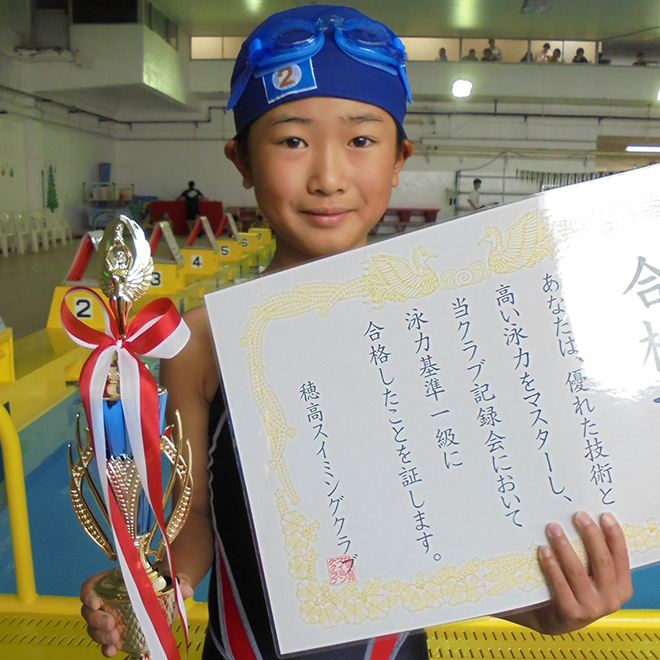 合格
あなたは、優れた技術と
高い泳力をマスターし、
当クラブ記録会において
泳力基準一級に
合格したことを証します。
穂高スイミングクラブ
2
2
3
4
5
6